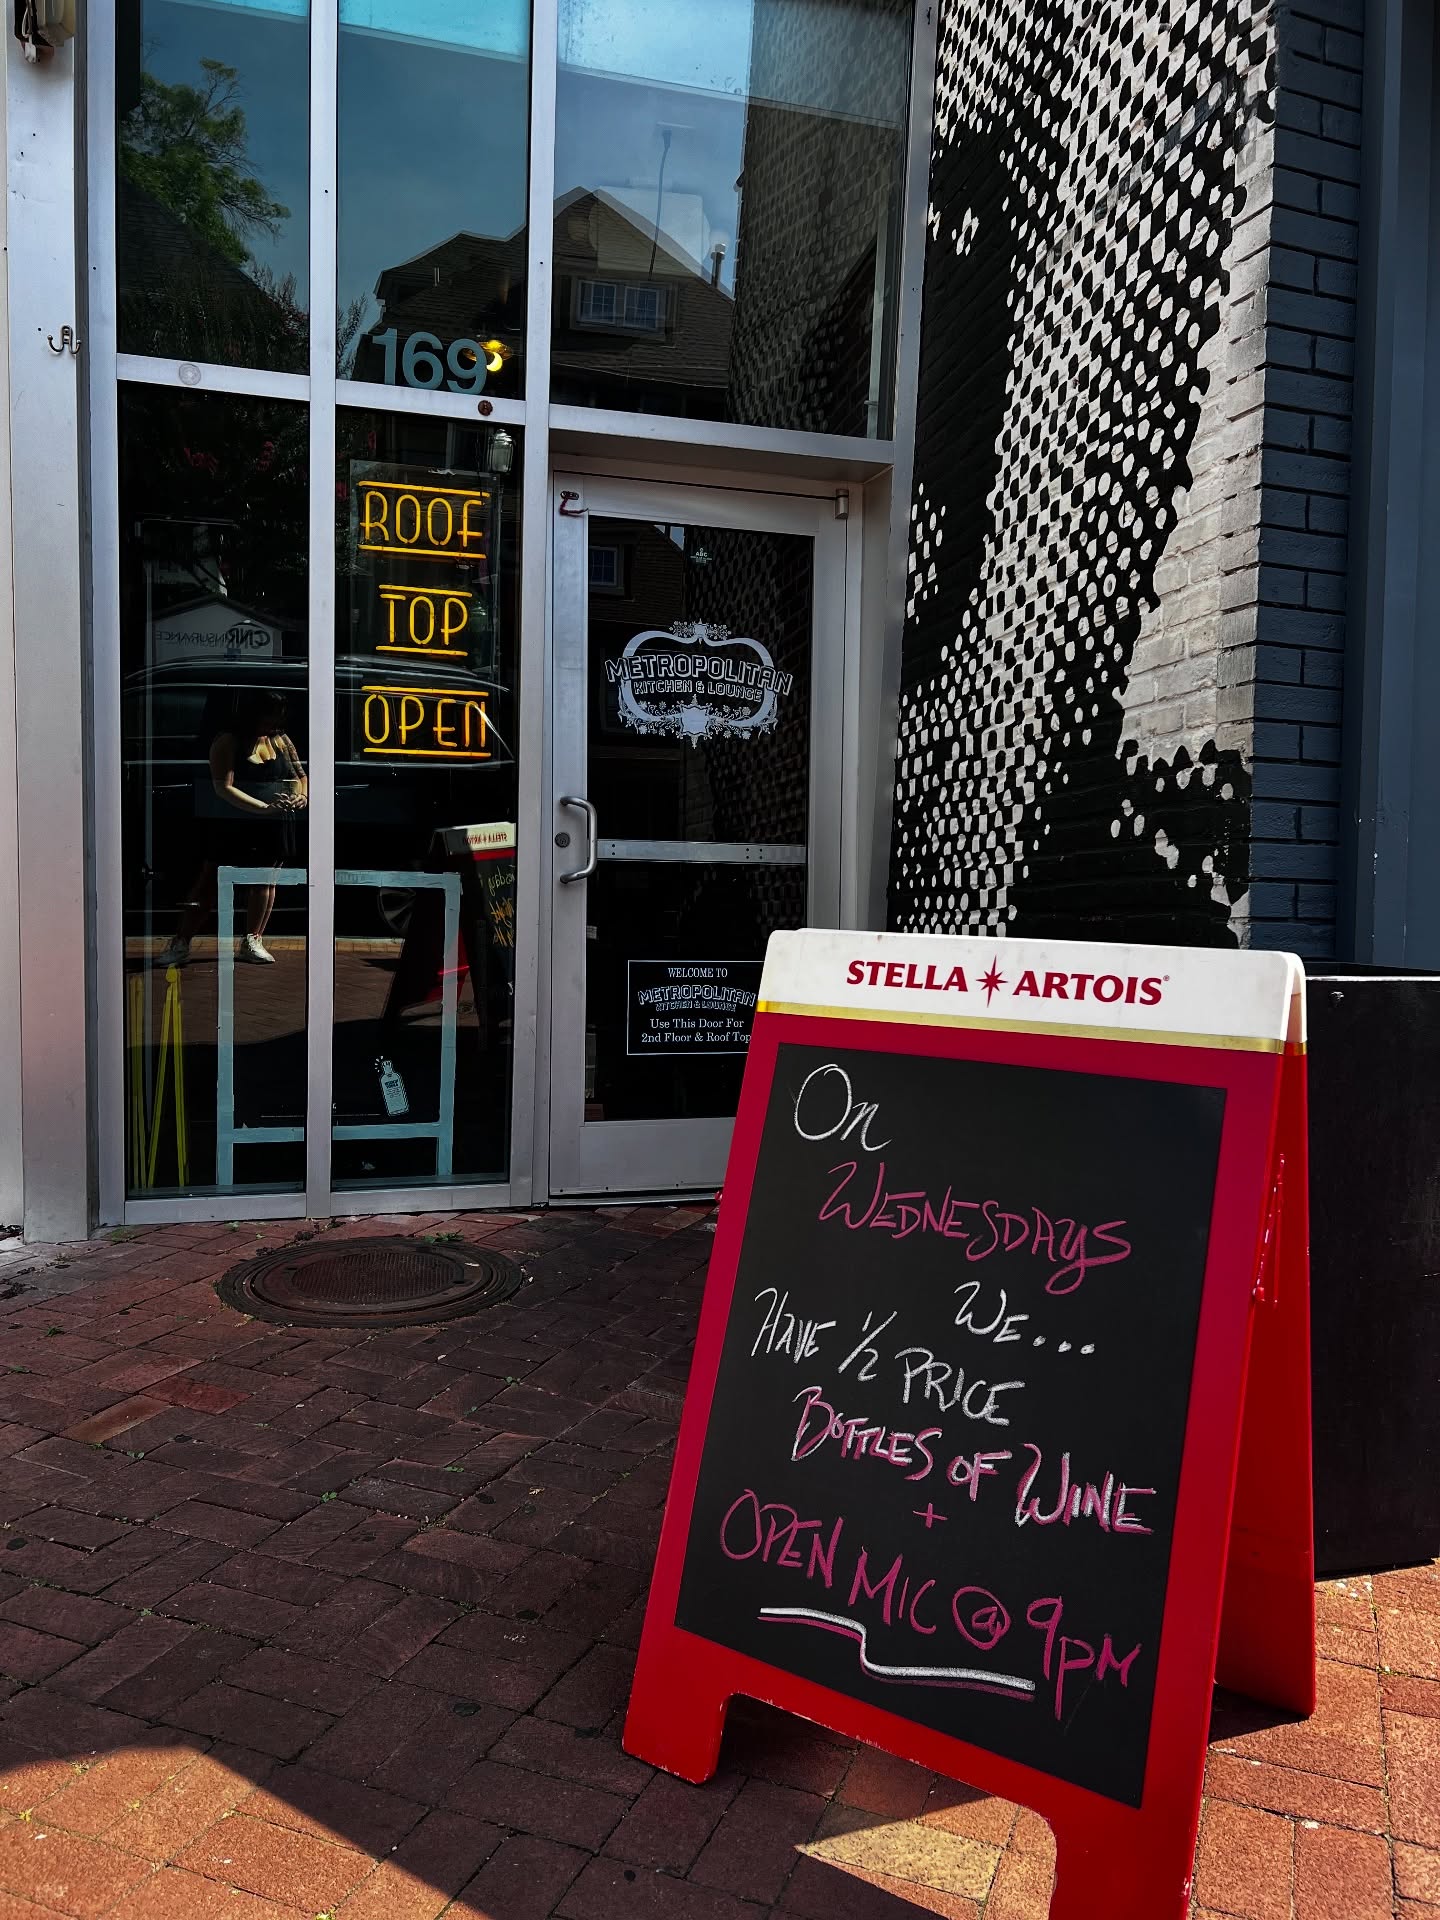 169
ROOF
TOP
OPEN
METROPOLITAN
KITCHEN & LOUNGE
WELCOME TO
METROPOLITAN
KITCHEN & LOUNGE
Use This Door For
2nd Floor & Roof Top
STELLA ARTOIS
On
WEDNESDAYS
WE...
HAVE 1/2 PRICE
BOTTLES OF WINE
+
OPEN MIC @ 9PM